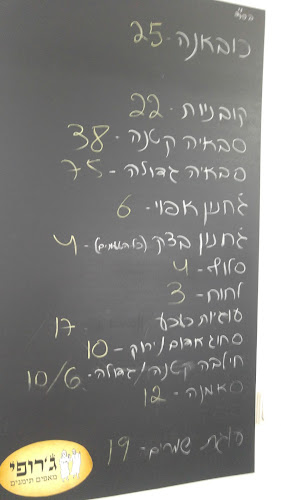 בס"ד
כובאנה - 25
קובניות - 22
סבאיה קטנה - 38
סבאיה גדולה - 75
ג'חנון אפוי - 6
ג'חנון בצק - 4
סלוף - 4
לחוח - 3
עוגיות כעכע 17
סחוג אדום/ירוק - 10
חילבה קטנה/גדולה - 10/6
סאמנה - 12
עוגת שמרים - 19
ג'רופי
מאפים תימנים